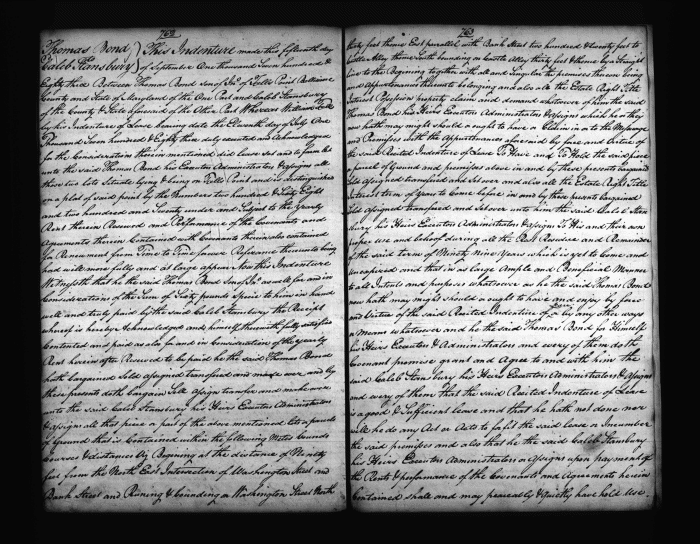 762
Thomas Bond } This Indenture made this fifteenth day
Caleb Stansbury } of September One thousand seven hundred &
Eighty three Between Thomas Bond Son of Jno. of Fells Point Baltimore
County and State of Maryland of the One Part and Caleb Stansbury
of the County & State aforesaid of the Other Part Whereas William
by his Indenture of Lease bearing date the Eleventh day of July One
Thousand Seven hundred & Eighty three duly executed and Acknowledged
for the Consideration therein mentioned did lease set and to farm let
unto the said Thomas Bond his Executors Administrators & assigns all
those two lots Situate lying & being on Fells Point and is distinguished
on a plot of said point by the Numbers two hundred & Sixty Eight
and two hundred and Seventy under and Subject to the Yearly
Rent therein Reserved and Performance of the Covenants and
Agreements therein Contained with Covenants therein also contained
for Renewment from Time to Time forever Reference thereunto being
had will more fully and at large appear Now this Indenture
Witnesseth that he the said Thomas Bond Son of Jno. as well for and in
Considerations of the Sum of Sixty pounds Specie to him in hand
well and truly paid by the said Caleb Stansbury the Receipt
whereof is hereby Acknowledged and himself therewith fully satisfied
Contented and paid as also for and in Consideration of the yearly
Rent herein after Reserved to be paid he the said Thomas Bond
hath bargained Sold assigned transfered and made over and by
these presents doth bargain Sell Assign transfer and make over
unto the said Caleb Stansbury his Heirs Executors Administrators
& assigns all that piece or part of the above mentioned lots or parcels
of Ground that is Contained within the following Metes bounds
courses & distances Viz Begining at the distance of Ninety
feet from the North East Intersection of Washington Street and
Bank Street and Runing & bounding on Washington Street North
763
thirty feet thence East parallel with Bank Street two hundred & twenty feet to
Castle Alley thence South bounding on Castle Alley thirty feet & thence by a Straight
line to the Begining together with all and Singular the premises thereunto being
and Appurtenances thereunto belonging and also all the Estate Right Title
Interest Possession property claim and demand whatsoever of him the said
Thomas Bond his Heirs Executors Administrators & assigns which he or they
now hath may might should or ought to have or Claim in or to the Messuage
and Premises with the Appurtenances aforesaid by force and virtue of
the said Recited Indenture of Lease To Have and To Hold the said piece
or parcel of Ground and premises above in and by these presents bargained
Sold Assigned transferred and set over and also all the Estate Right Title
Interest term of Years to Come before in and by these presents bargained
Sold Assigned transferd and set over unto him the said Caleb Stans
bury his Heirs Executors Administrators & Assigns To His and their own
proper Use and behoof during all the Rest Residue and Remainder
of the said term of Ninety Nine Years which is yet to Come and
unexpired and that in as large Ample and Beneficial Manner
to all Intents and purposes whatsoever as he the said Thomas Bond
now hath may might should or ought to have and enjoy by force
and Virtue of the said Recited Indenture of Lease or by any other ways
or Means whatsoever and he the said Thomas Bond for Himself
his Heirs Executors & Administrators and every of them doth
Covenant promise grant and Agree to and with him the
said Caleb Stansbury his Heirs Executors Administrators & Assigns
and every of them that the said Recited Indenture of Lease
is a good & Sufficient lease and that he hath not done nor
will he do any Act or Acts to forfit the said lease or Incumber
the said premises and also that he the said Caleb Stansbury
his Heirs Executors Administrators or Assigns upon payment of
the Rents & performance of the Covenants and Agreements herein
Contained shall and may peaceably & Quietly have hold Use